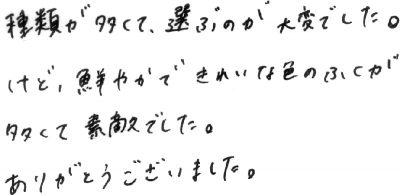 種類が多くて、選ぶのが大変でした。
けど、鮮やかできれいな色のふくが
多くて素敵でした。
ありがとうございました。